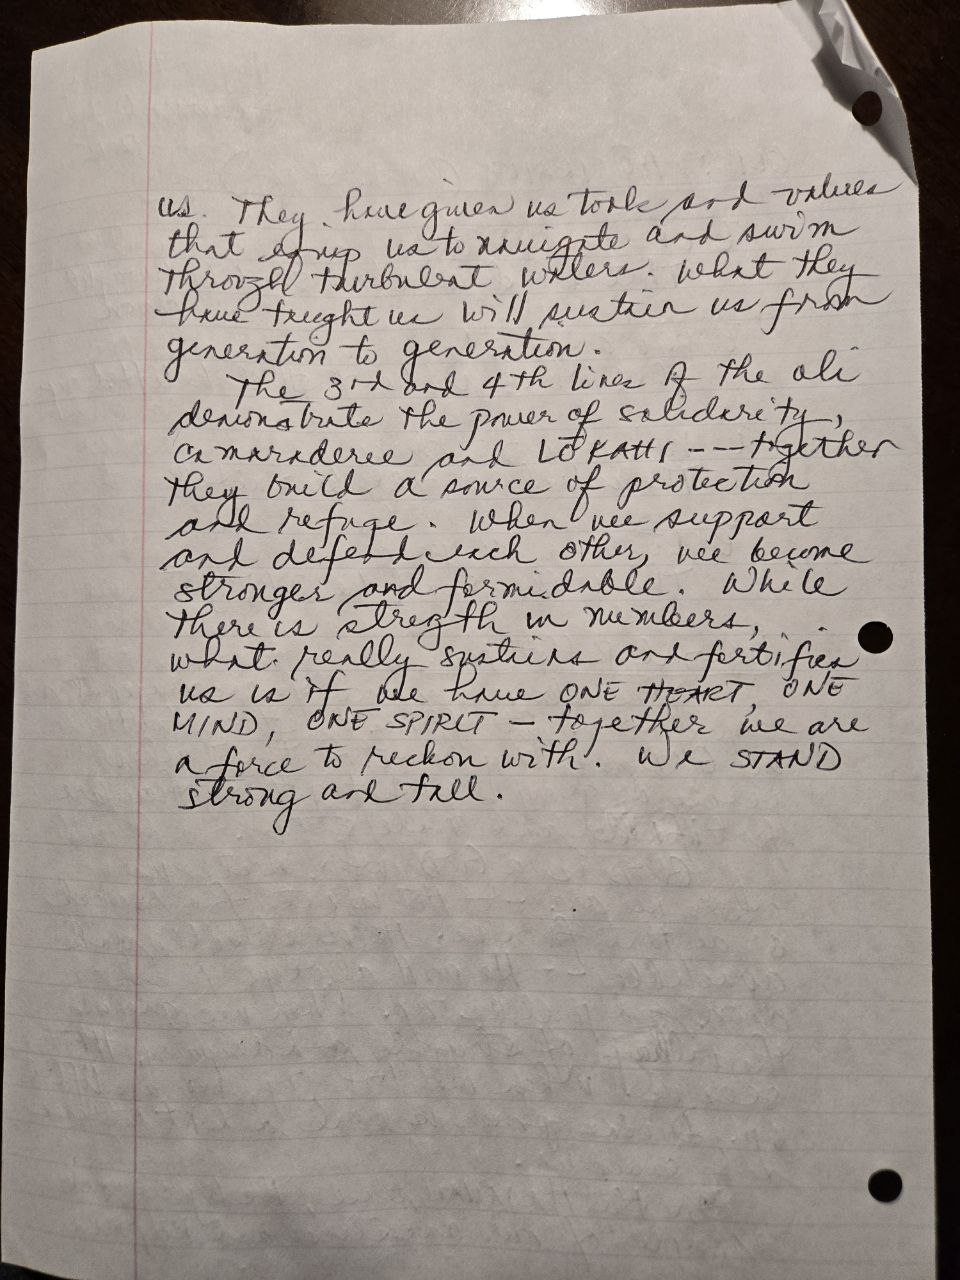 us. They have given us tools and values
that equip us to navigate and swim
through turbulent waters. What they
have taught us will sustain us from
generation to generation.
The 3rd and 4th lines of the oli
demonstrate the power of solidarity,
camaraderee and LŌKAHI --- together
they build a source of protection
and refuge. When we support
and defend each other, we become
stronger and formidable. While
there is stregth in numbers,
what really sustains and fortifies
us is if we have ONE HEART, ONE
MIND, ONE SPIRIT - together we are
a force to reckon with. We STAND
strong and tall.